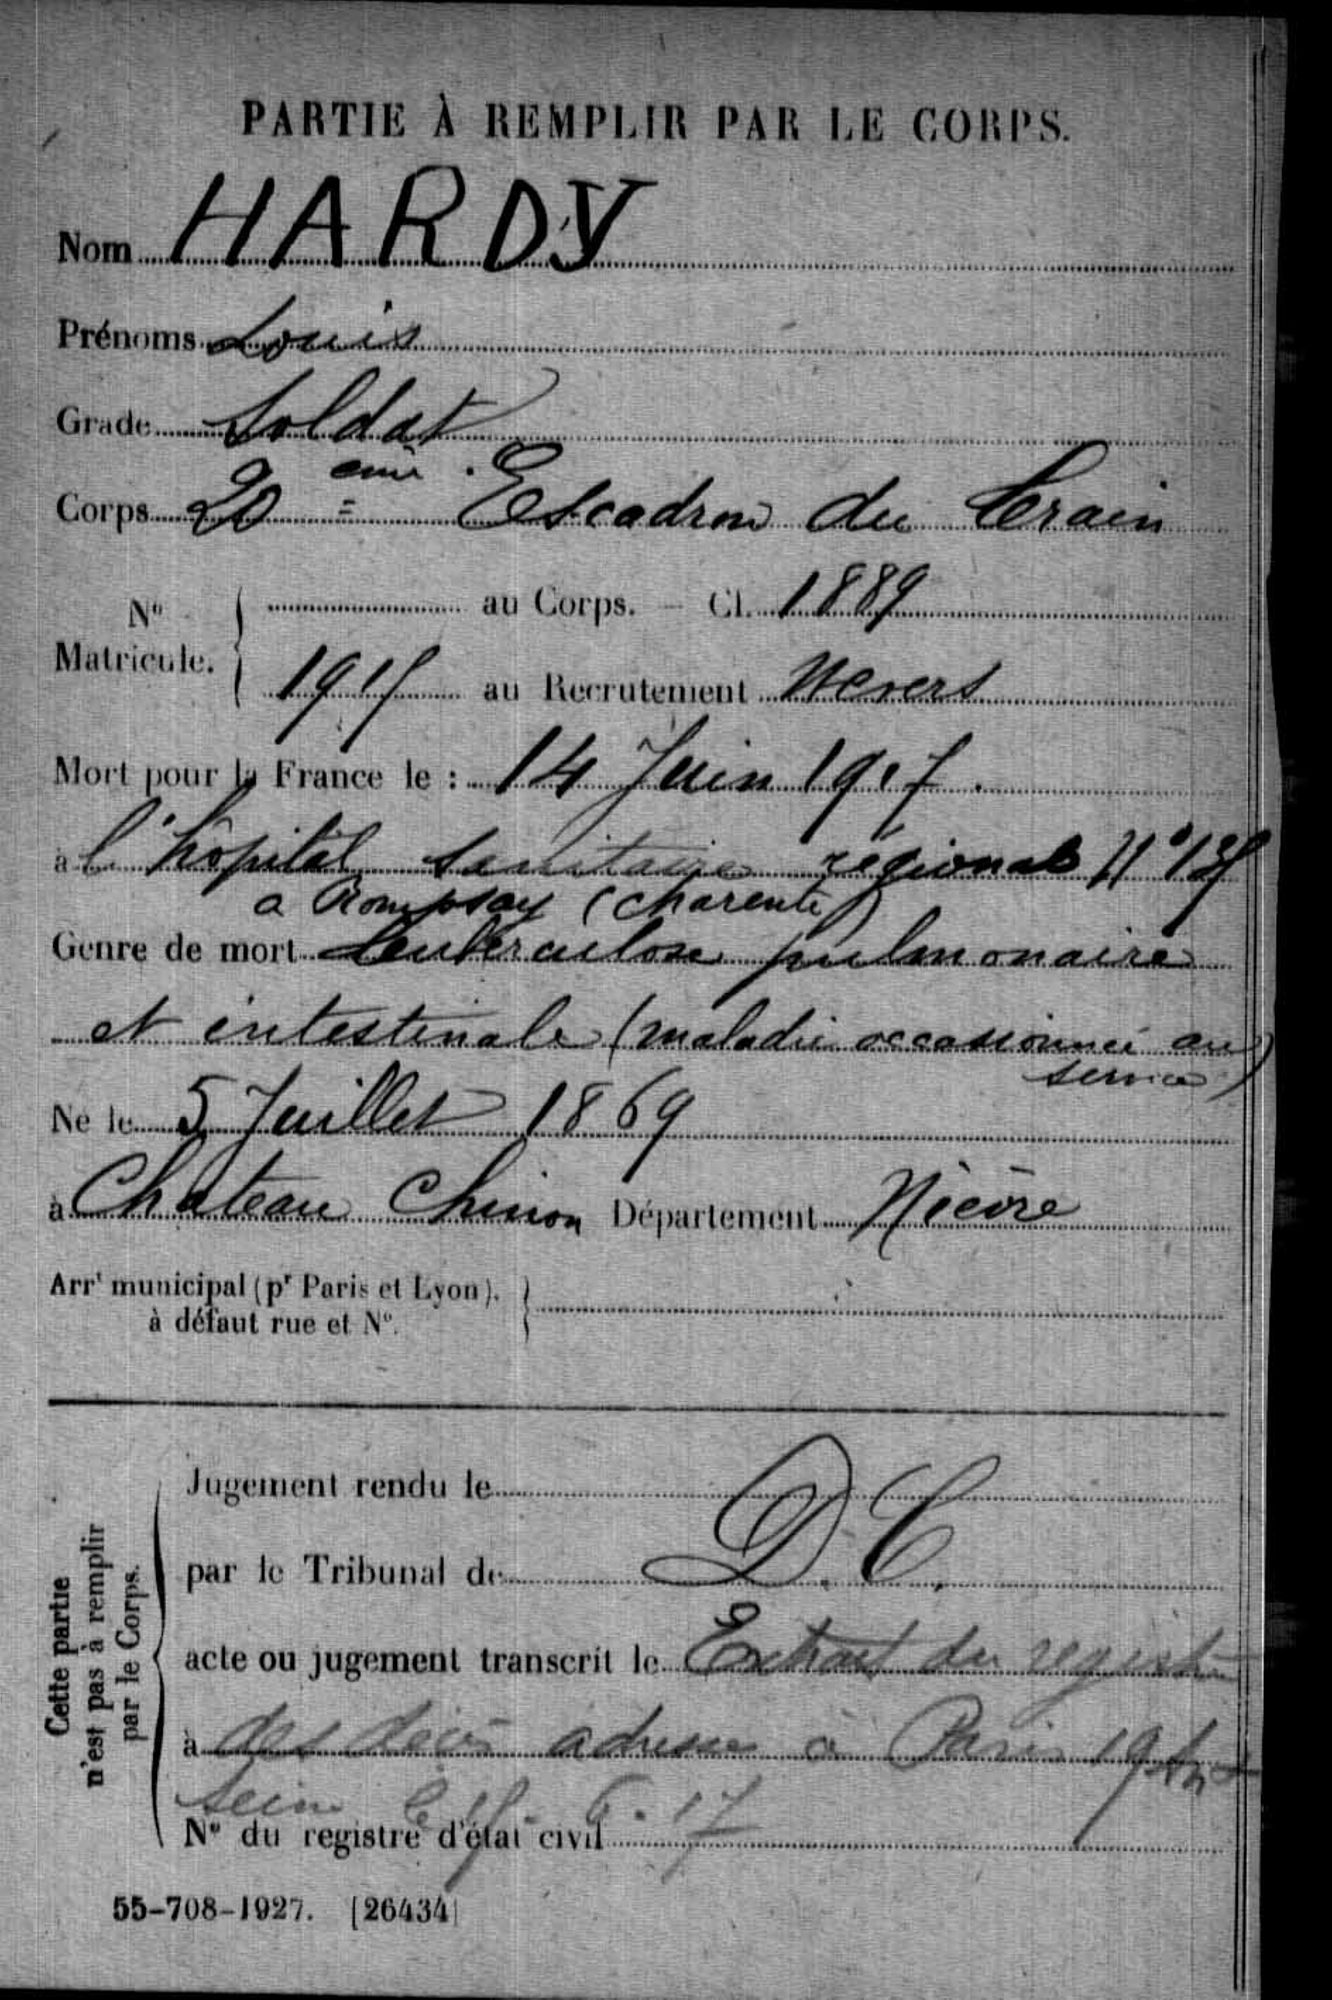 PARTIE À REMPLIR PAR LE CORPS.
Nom HARDY
Prénoms Louis
Grade Soldat
Corps 20 ème Escadron du Train
N° Matricule. { au Corps. — Cl. 1889
1915 au Recrutement Nevers
Mort pour la France le : 14 Juin 1917.
à l'hôpital sanitaire régional N°
a Rompsay (Charente)
Genre de mort pulmonaire
et intestinale (maladie occasionnée au
service)
Né le 5 Juillet 1869
à Chateau Chinon Département Nièvre
Arrt municipal (pr Paris et Lyon),
à défaut rue et N°.
Cette partie
n'est pas à remplir
par le Corps.
Jugement rendu le
par le Tribunal de D. C.
acte ou jugement transcrit le Extrait du registre
à des décès adressé à Paris 19
Seine
N° du registre d'état civil
55-708-1927. [26434]